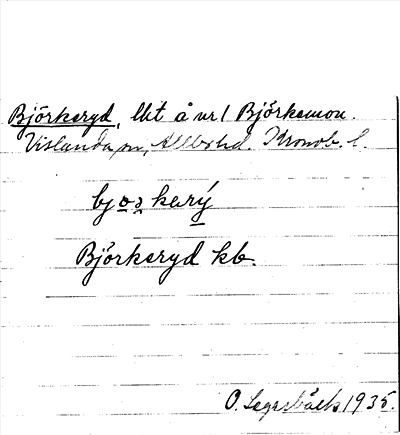 Björkeryd, lht å nr 1 Björkemon.
Vislanda sn, Allbo hd. Kronob. l.
bjo̲ɔ̲ kerý̲
Björkeryd kb.
O. Legesbäck 1935.